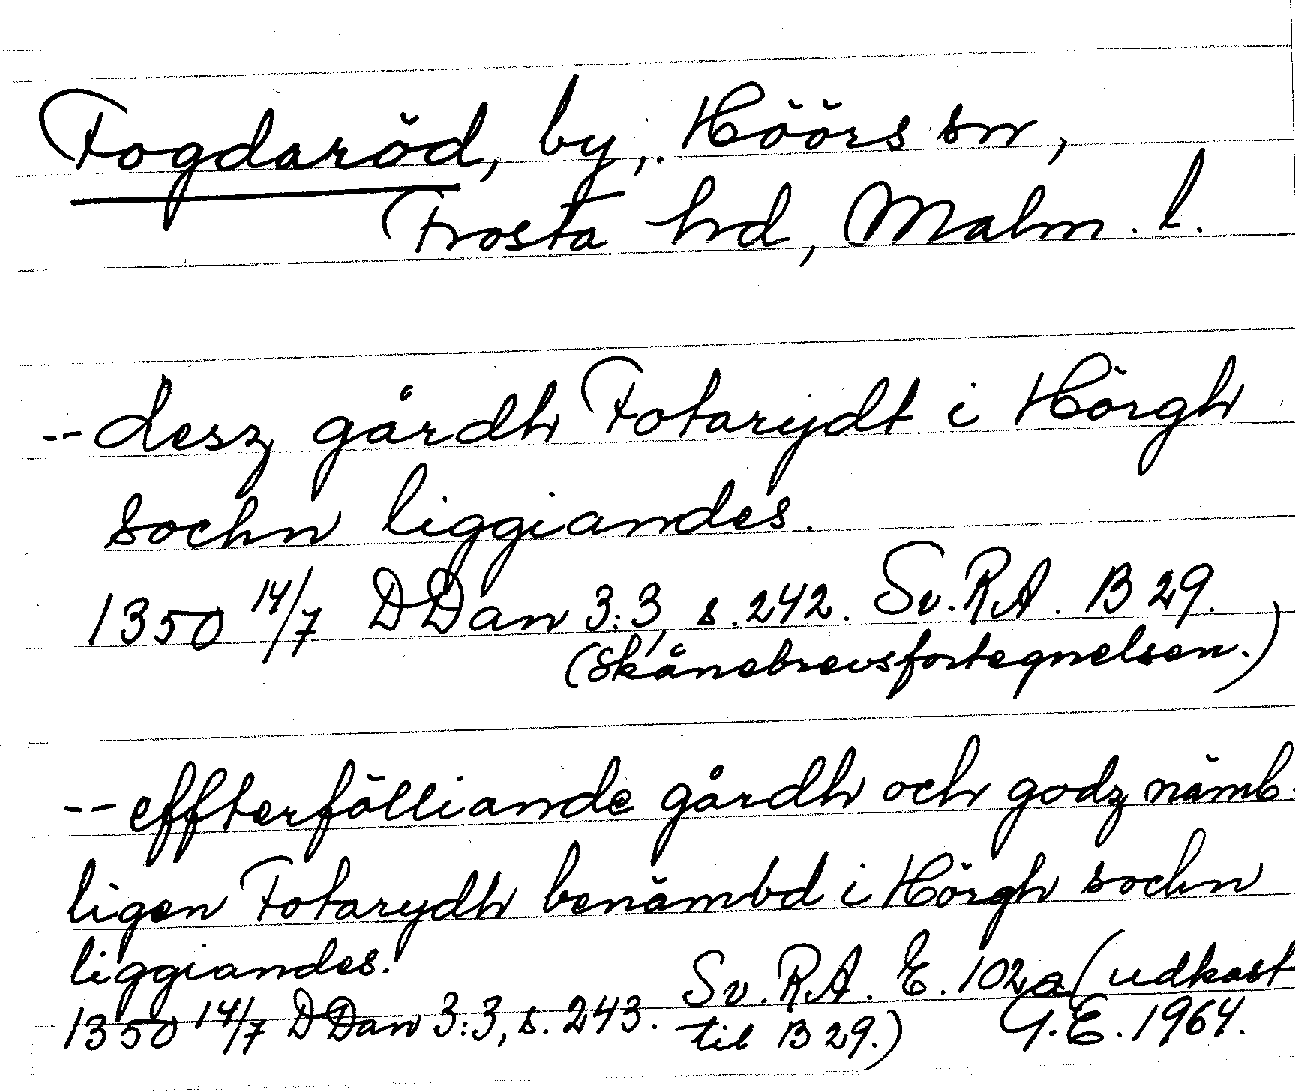 Fogdaröd, by, Höörs sn,
Frosta hd, Malm. l.
-- desz gårdh Fotarydt i Hörgh
sochn liggiandes.
1350 14/7 DDan 3:3, s. 242. Sv. RA. B 29.
(Skånebrevsfortegnelsen.)
-- effterfölliande gårdh och godz nämb-
ligen Fotarydh benämbd i Hörgh sochn
liggiandes.
1350 14/7 DDan 3:3, s. 243. Sv. RA. E. 102a (udkast
til B 29.) G.E. 1964.